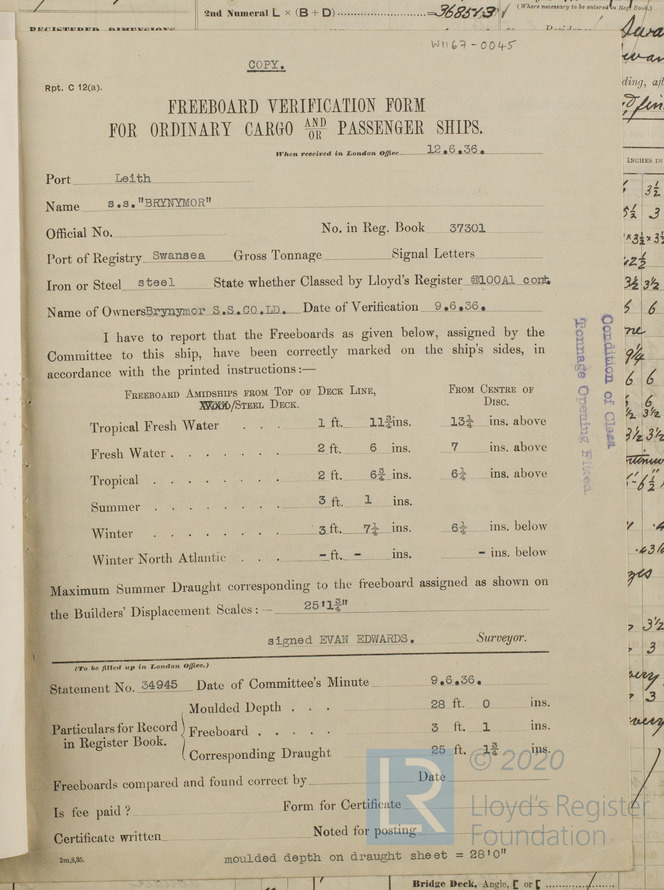 2nd Numeral L × (B + D) 368513
(Where necessary to be entered in Reg. Book.)
REGISTERED DIMENSIONS
W1167-0045
COPY.
Rpt. C 12(a).
FREEBOARD VERIFICATION FORM
FOR ORDINARY CARGO AND/OR PASSENGER SHIPS.
When received in London Office 12.6.36.
Port Leith
Name s.s."BRYNYMOR"
Official No. No. in Reg. Book 37301
Port of Registry Swansea Gross Tonnage Signal Letters
Iron or Steel steel State whether Classed by Lloyd's Register ✠100A1 cont.
Name of Owners Brynymor S.S.CO.LD. Date of Verification 9.6.36.
I have to report that the Freeboards as given below, assigned by the
Committee to this ship, have been correctly marked on the ship's sides, in
accordance with the printed instructions:—
FREEBOARD AMIDSHIPS FROM TOP OF DECK LINE, FROM CENTRE OF
WOOD/STEEL DECK. DISC.
Tropical Fresh Water . . . 1 ft. 11¾ ins. 13¼ ins. above
Fresh Water . . . . . . 2 ft. 6 ins. 7 ins. above
Tropical . . . . . . . 2 ft. 6¾ ins. 6¼ ins. above
Summer . . . . . . . . 3 ft. 1 ins.
Winter . . . . . . . 3 ft. 7¼ ins. 6¼ ins. below
Winter North Atlantic . . . - ft. - ins. - ins. below
Maximum Summer Draught corresponding to the freeboard assigned as shown on
the Builders' Displacement Scales:— 25'1¾"
signed EVAN EDWARDS. Surveyor.
(To be filled up in London Office.)
Statement No. 34945 Date of Committee's Minute 9.6.36.
Moulded Depth . . . 28 ft. 0 ins.
Particulars for Record
in Register Book.
Freeboard . . . . . 3 ft. 1 ins.
Corresponding Draught 25 ft. 1¾ ins.
Freeboards compared and found correct by Date
Is fee paid? Form for Certificate
Certificate written Noted for posting
2m,8,35.
moulded depth on draught sheet = 28'0"
Condition of Class
Tonnage Opening Fitted
INCHES IN
LR
© 2020
Lloyd's Register
Foundation
Bridge Deck, Angle, [ or [